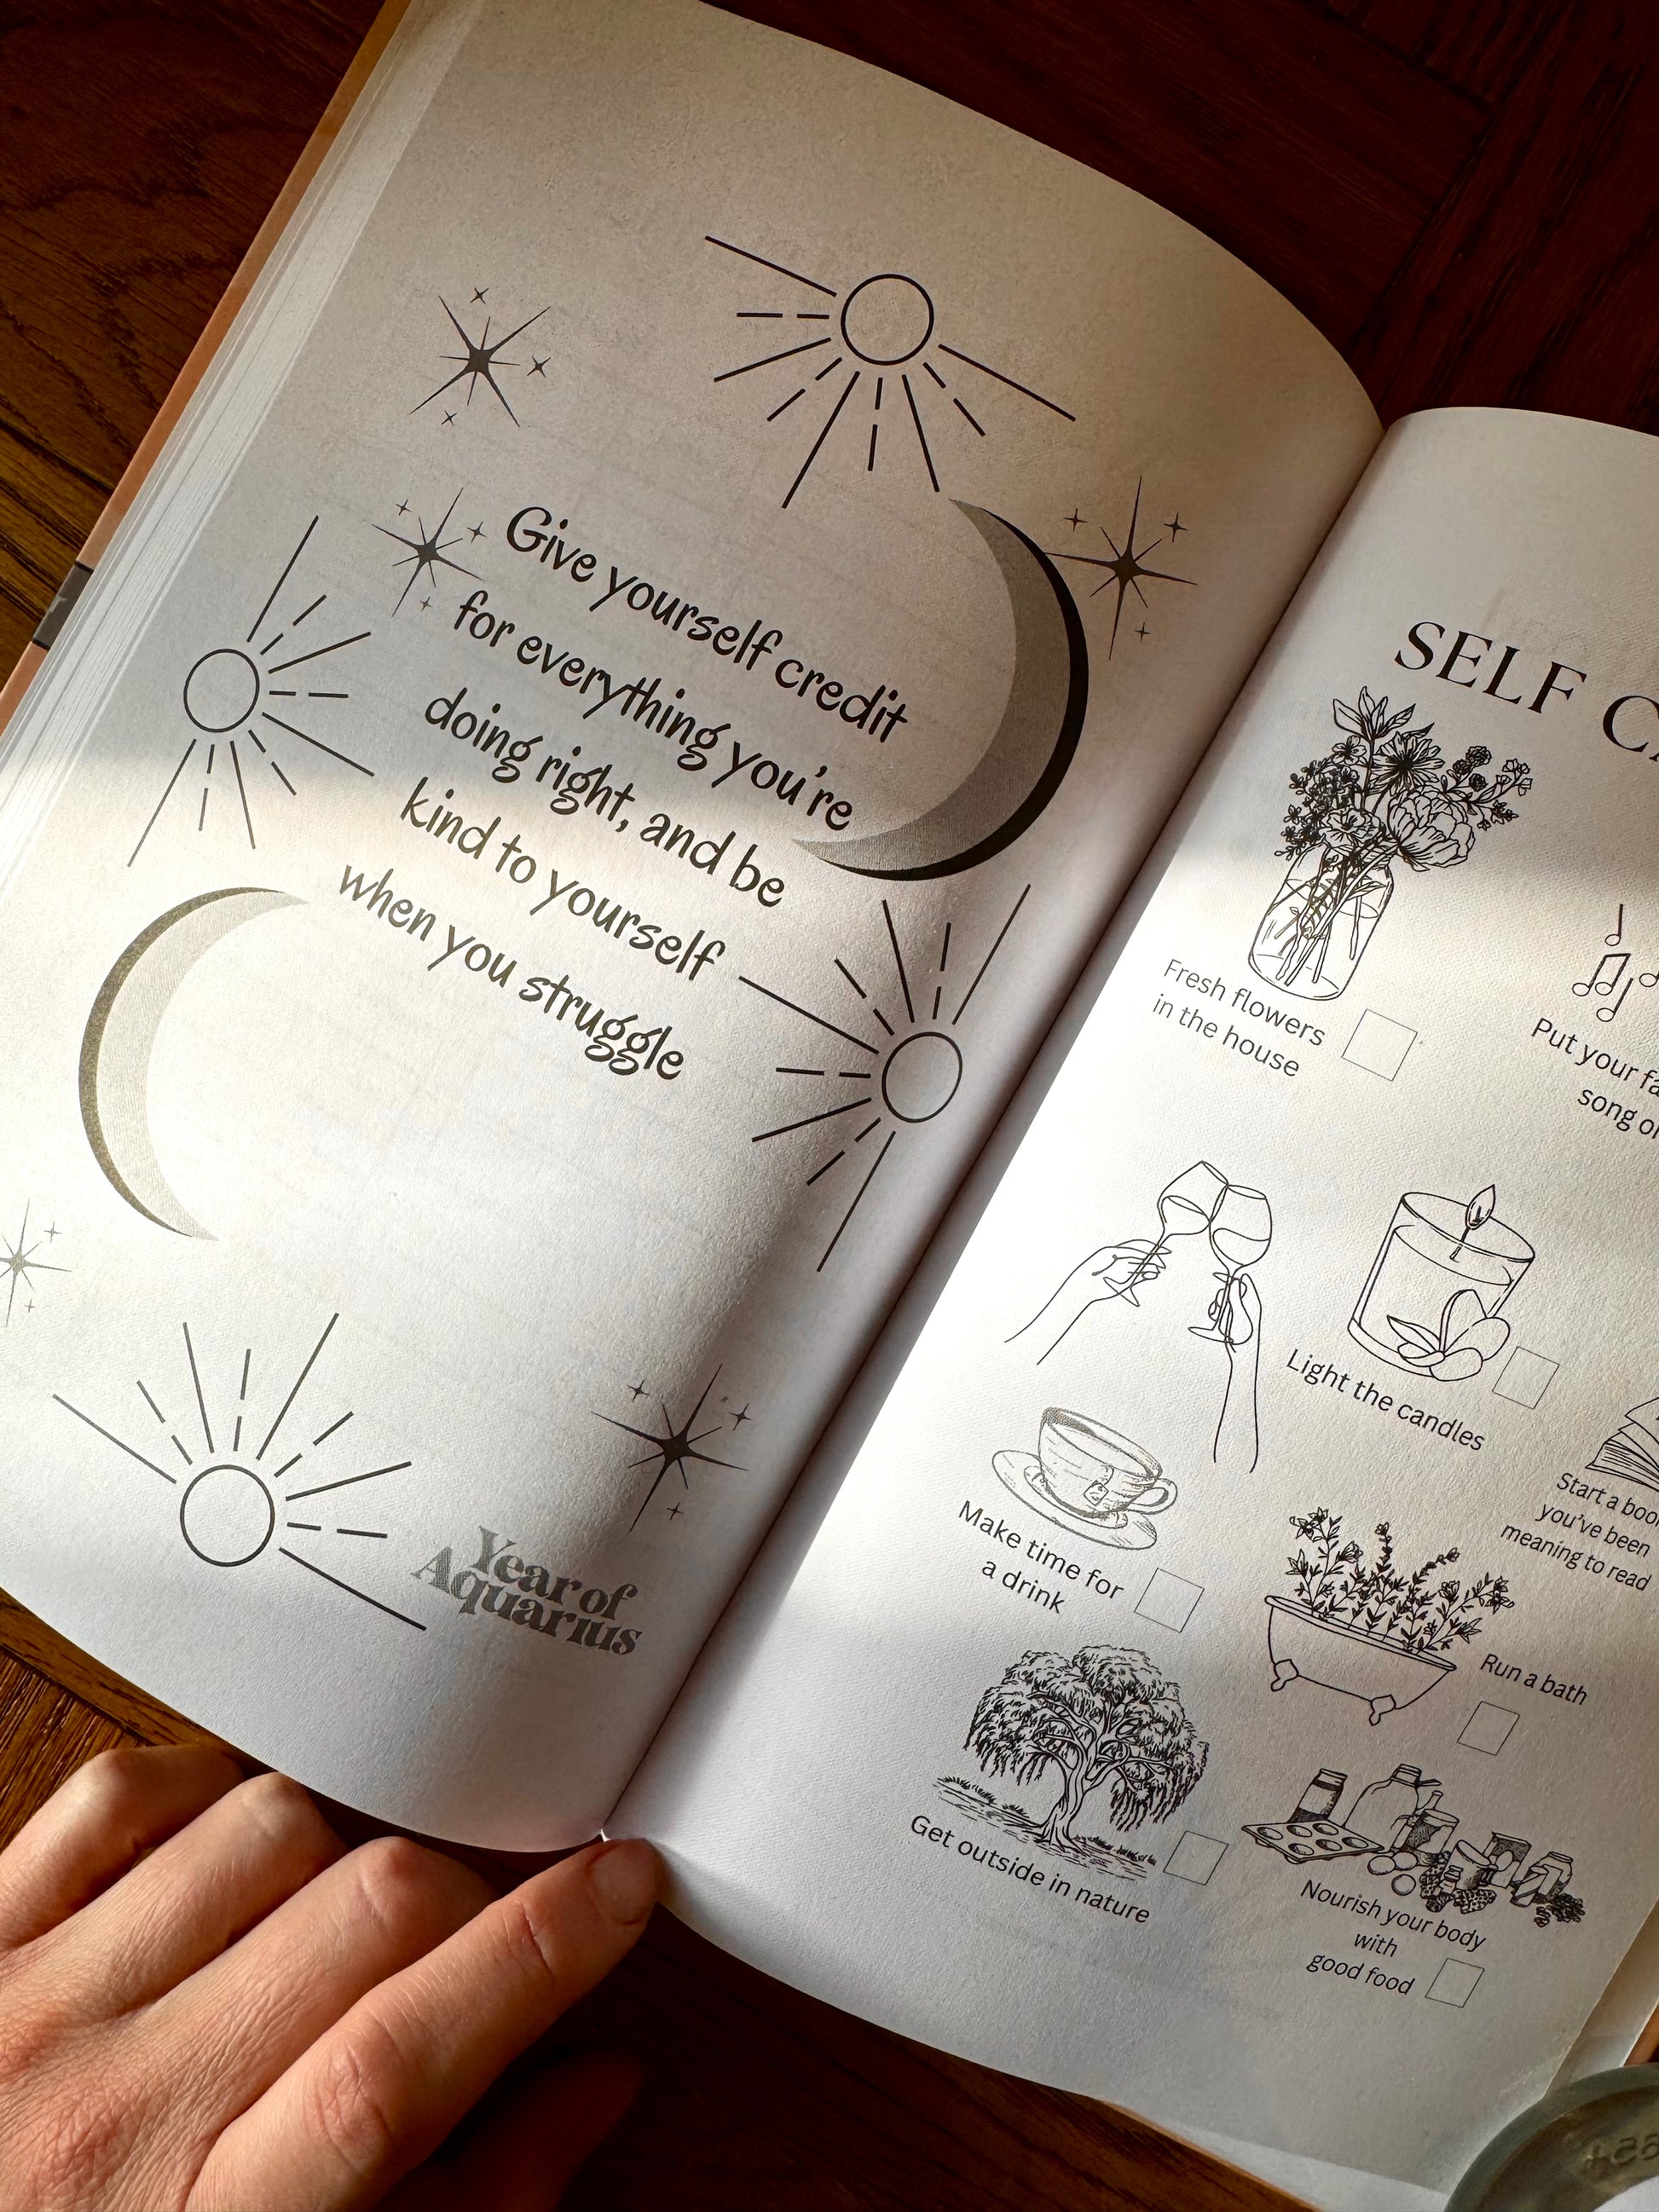 Give yourself credit
for everything you're
doing right, and be
kind to yourself
when you struggle
Year of
Aquarius
SELF
Fresh flowers
in the house
Put your
song
Light the candles
Make time for
a drink
Start a
you've been
meaning to read
Run a bath
Get outside in nature
Nourish your body
with
good food